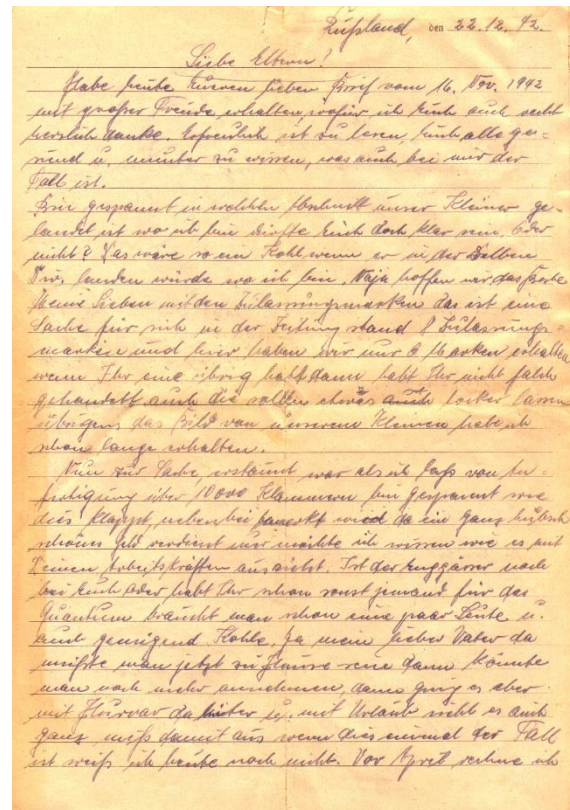 Rußland, den 22.12.42.
Liebe Eltern!
Habe heute Eueren lieben Brief vom 16. Nov. 1942
mit großer Freude erhalten, wofür ich Euch auch recht
herzlich danke. Erfreulich ist zu lesen, Euch alle ge-
sund u. munter zu wissen, was auch bei mir der
Fall ist.
Bin gespannt in welchen Abschnitt unser Kleiner ge-
landet ist wo ich bin dürfte Euch doch klar sein. Oder
nicht? Das wäre so ein Kohl wenn er in der Selben
Div. landen würde wo ich bin. Naja hoffen wir das Beste
Meine Lieben mit den Zulassungsmarken das ist eine
Sache für sich in der Zeitung stand 8 Zulassungs-
marken und hier haben wir nur 6 Marken erhalten
wenn Ihr eine übrig habt dann habt Ihr nicht falsch
gehandelt auch die sollen etwas locker lassen
übrigens das Bild von unserem Kleinen habe ich
schon lange erhalten.
Nun zur Sache, erstaunt war als ich laß von An-
fertigung über 10000 Klammern bin gespannt wie
dies klappt, nebenbei bemerkt wird da ein ganz hübsch
schönes Geld verdient nur möchte ich wissen wie es mit
Deinen Arbeitskräften aussieht. Ist der noch
bei Euch oder habt Ihr schon sonst jemand für das
Quantum braucht man schon eine paar Leute u.
auch genügend Kohle. Ja mein lieber Vater da
müßte man jetzt zu Hause sein dann könnte
man noch mehr annehmen, dann ging es aber
mit Hurrar dahinter u. mit Urlaub sieht es auch
ganz damit aus wenn dies einmal der Fall
ist weiß ich heute noch nicht. Vor April rechne ich